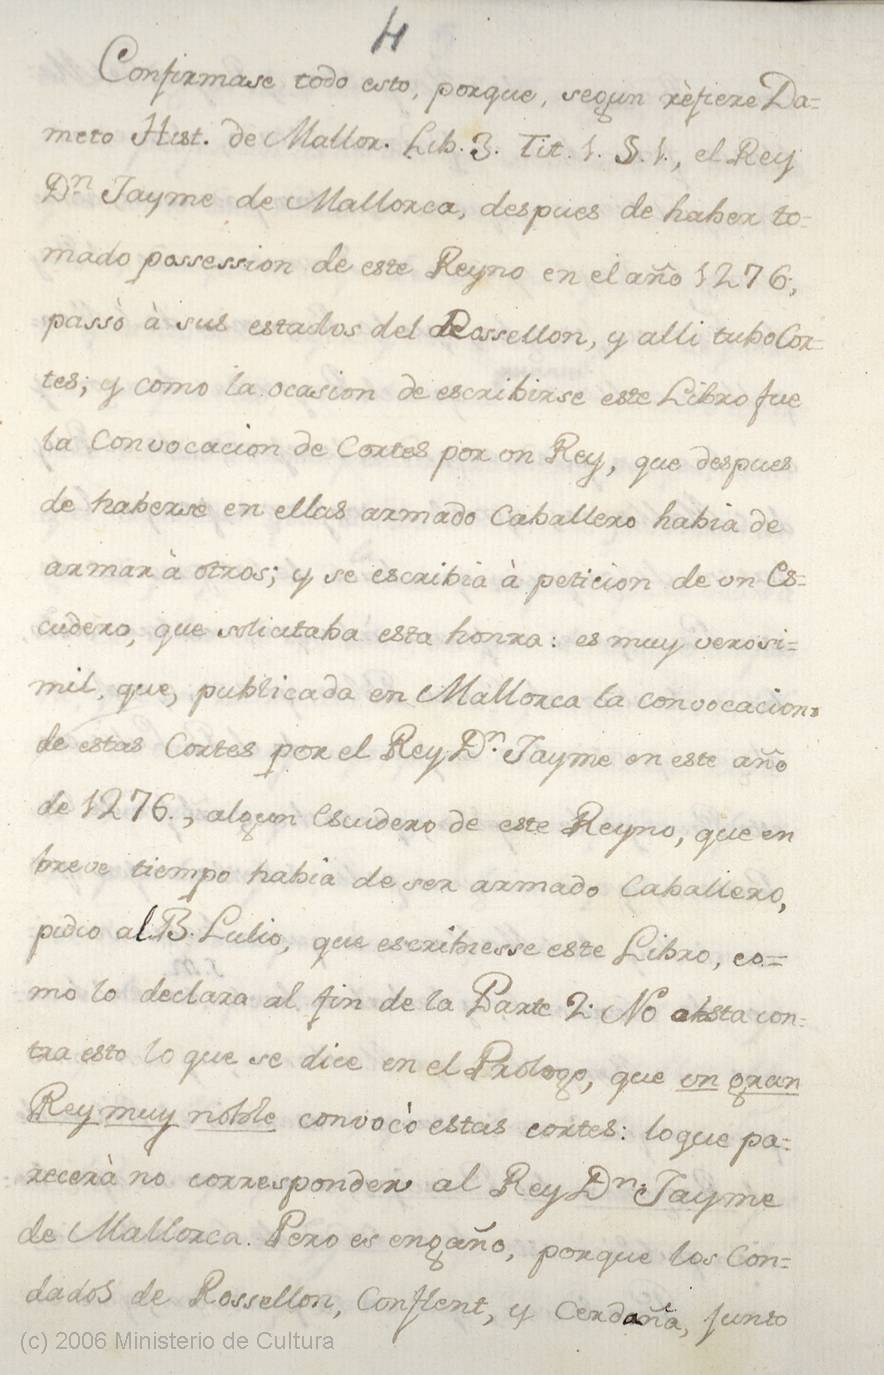 4
Confirmase todo esto, porque, segun rèfiere Da=
meto Hist. de Mallor. Lib. 3. Tit. 1. §. 1., el Rey
Dn. Jayme de Mallorca, despues de haber to=
mado possession de este Reyno en el año 1276,
passò à sus estados del Rossellon, y alli tubo Cor=
tes; y como la ocasion de escribirse este Libro fue
la Convocacion de Cortes por un Rey, que despues
de haberse en ellas armado Caballero habia de
armar à otros; y se escribia à peticion de un Es=
cudero, que solicitaba esta honra: es muy verosi=
mil, que, publicada en Mallorca la convocacion
de estas Cortes por el Rey Dn. Jayme en este año
de 1276., algun Escudero de este Reyno, que en
breve tiempo habia de ser armado Caballero,
pidio al B. Lulio, que escribiesse este Libro, co=
mo lo declara al fin de la Parte 2. No obsta con=
tra esto lo que se dice en el Prologo, que un gran
Rey muy noble convocò estas cortes: lo que pa=
recerà no corresponder al Rey Dn. Jayme
de Mallorca. Pero es engaño, porque los Con=
dados de Rossellon, Conflent, y Cerdaña, junto
(c) 2006 Ministerio de Cultura